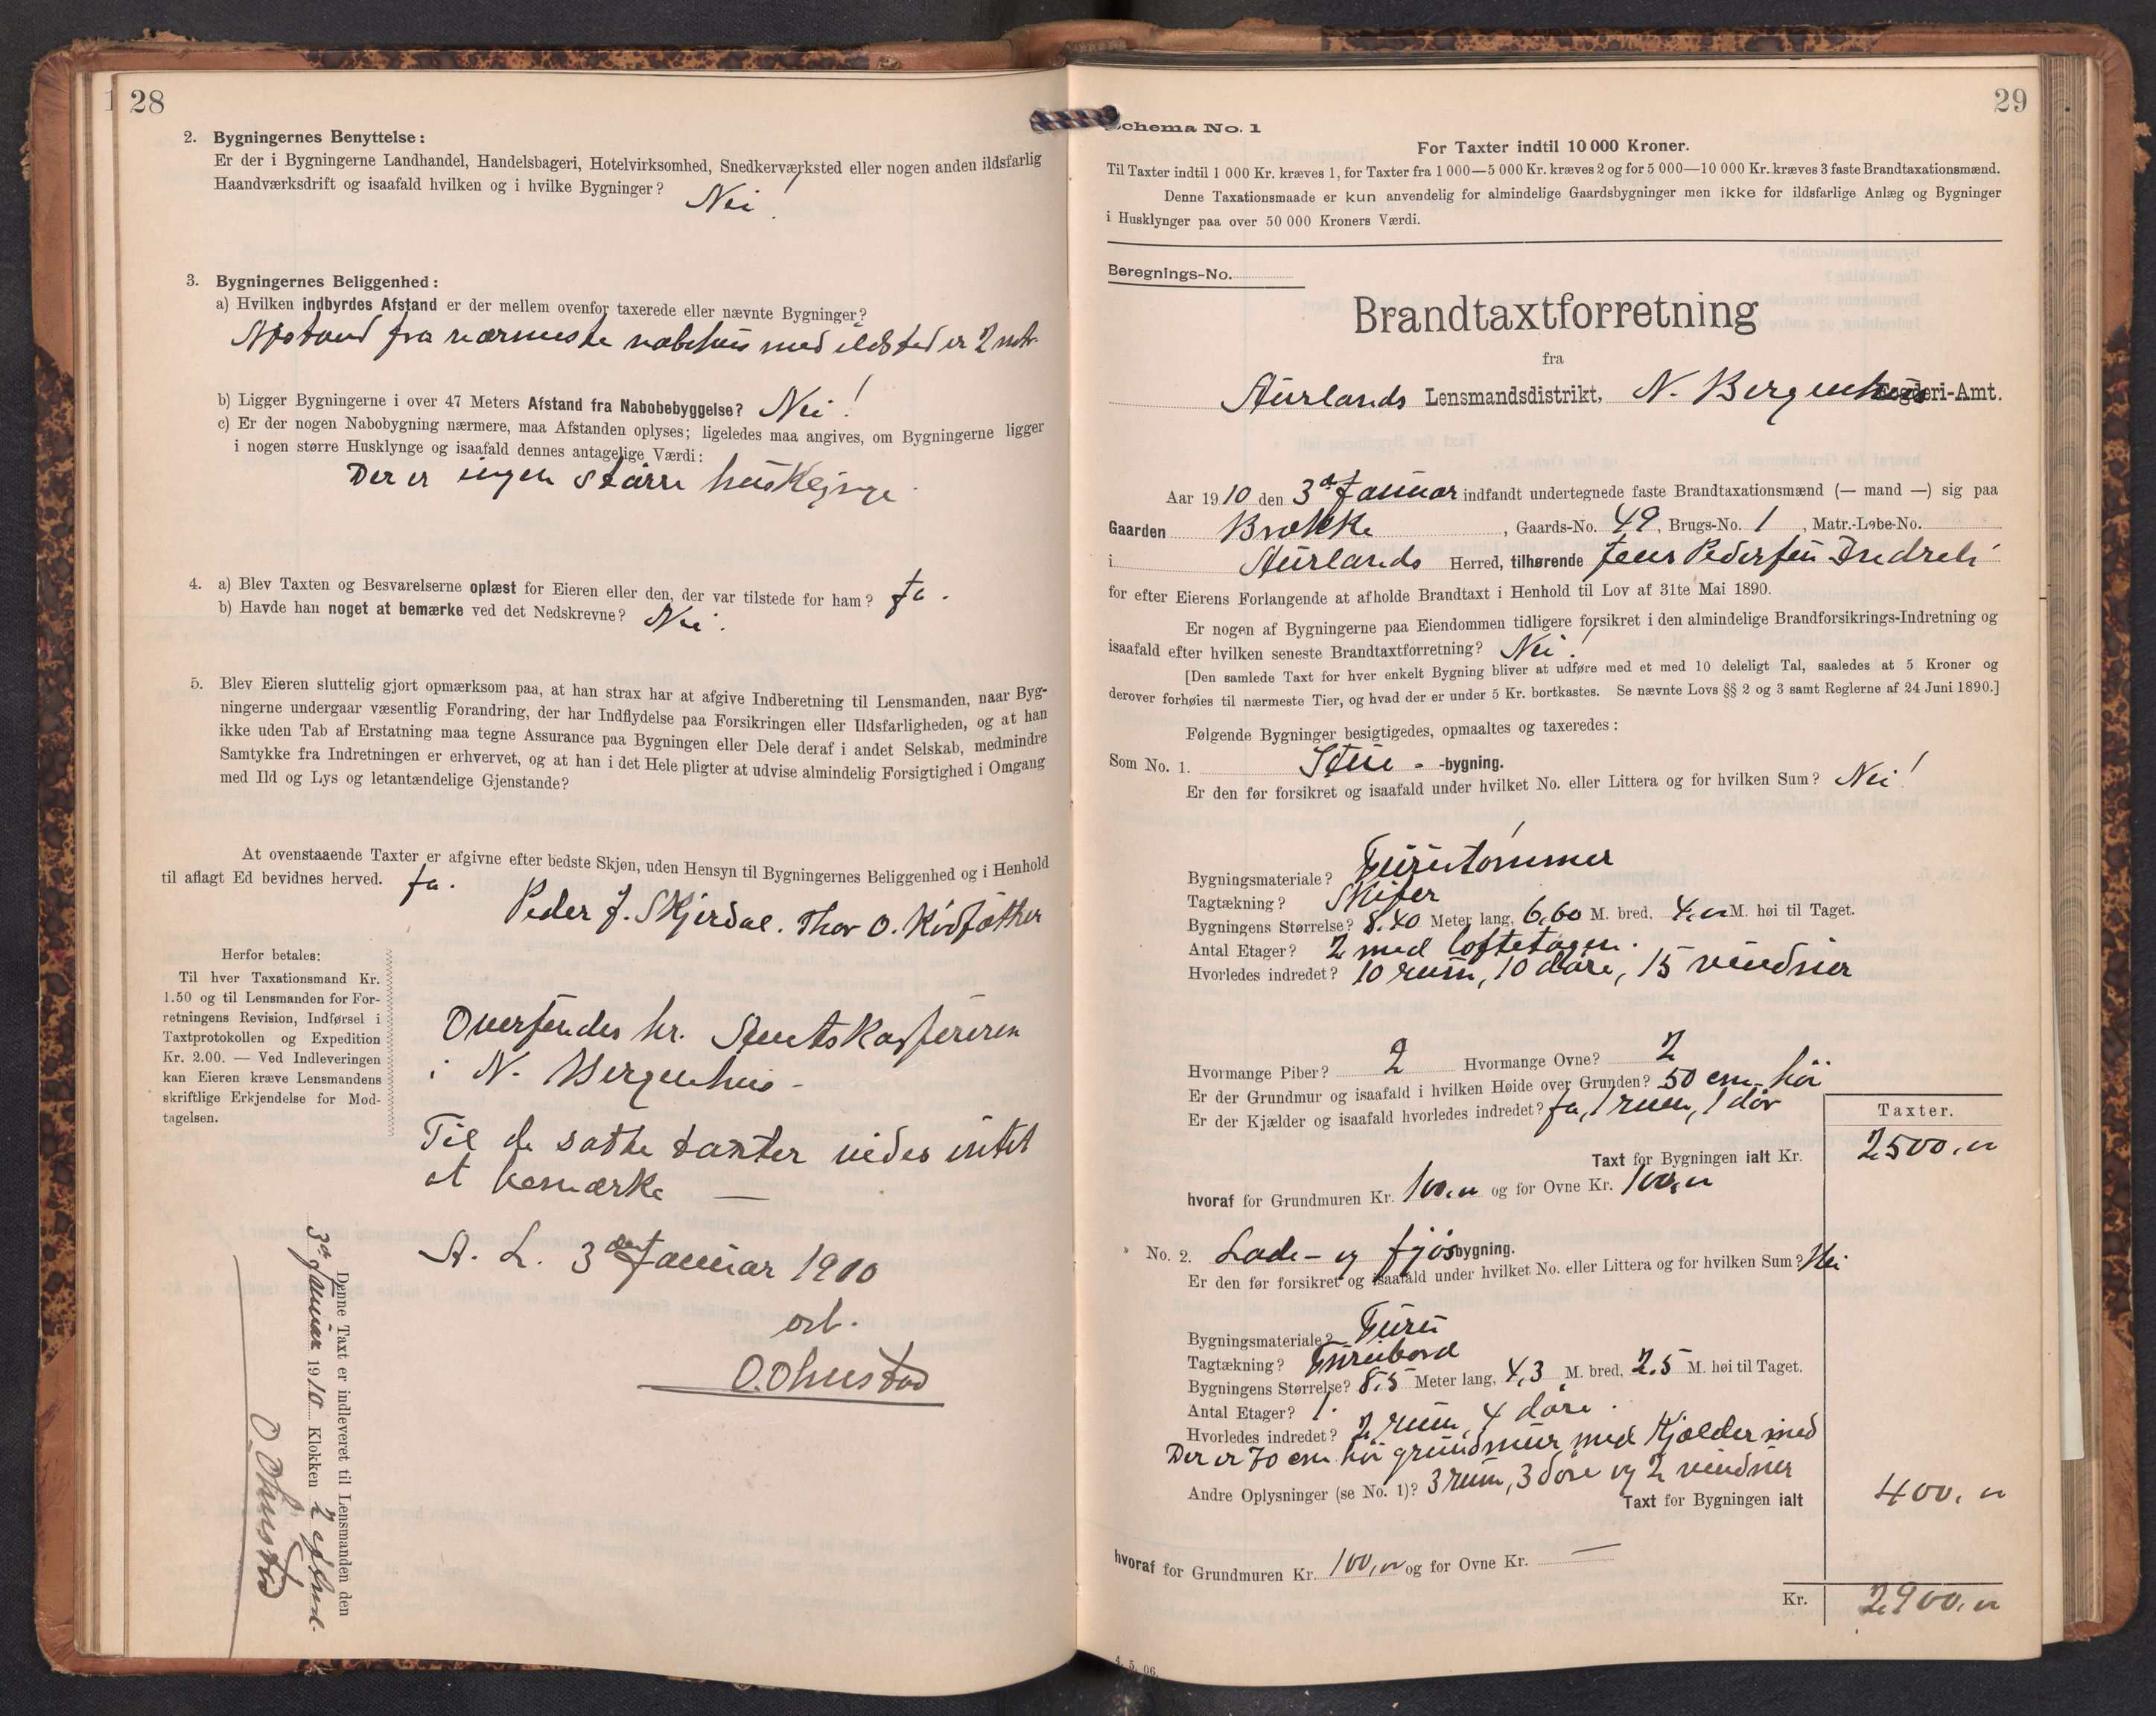 28
2. Bygningernes Benyttelse:
Er der i Bygningerne Landhandel, Handelsbageri, Hotelvirksomhed, Snedkerværksted eller nogen anden ildsfarlig
Haandværksdrift og isaafald hvilken og i hvilke Bygninger? Nei!
3. Bygningernes Beliggenhed:
a) Hvilken indbyrdes Afstand er der mellem ovenfor taxerede eller nævnte Bygninger?
Afstand fra nærmeste nabohus med ildsted er 2 mtr.
b) Ligger Bygningerne i over 47 Meters Afstand fra Nabobebyggelse? Nei!
c) Er der nogen Nabobygning nærmere, maa Afstanden oplyses; ligeledes maa angives, om Bygningerne ligger
i nogen større Husklynge og isaafald dennes antagelige Værdi:
Der er ingen større husklynge.
4. a) Blev Taxten og Besvarelserne oplæst for Eieren eller den, der var tilstede for ham? Ja.
b) Havde han noget at bemærke ved det Nedskrevne? Nei.
5. Blev Eieren sluttelig gjort opmærksom paa, at han strax har at afgive Indberetning til Lensmanden, naar Byg-
ningerne undergaar væsentlig Forandring, der har Indflydelse paa Forsikringen eller Ildsfarligheden, og at han
ikke uden Tab af Erstatning maa tegne Assurance paa Bygningen eller Dele deraf i andet Selskab, medmindre
Samtykke fra Indretningen er erhvervet, og at han i det Hele pligter at udvise almindelig Forsigtighed i Omgang
med Ild og Lys og letantændelige Gjenstande?
At ovenstaaende Taxter er afgivne efter bedste Skjøn, uden Hensyn til Bygningernes Beliggenhed og i Henhold
til aflagt Ed bevidnes herved. Ja.
Peder J. Skjerdal. Thor O.
Herfor betales:
Til hver Taxationsmand Kr.
1.50 og til Lensmanden for For-
retningens Revision, Indførsel i
Taxtprotokollen og Expedition
Kr. 2.00. — Ved Indleveringen
kan Eieren kræve Lensmandens
skriftlige Erkjendelse for Mod-
tagelsen.
Oversendes hr. Amtskassereren
i N. Bergenhus -
Til de satte taxter vides intet
at bemærke —
A. L. 3die Januar 1910
erb.
O. Ohnstad
Denne Taxt er indleveret til Lensmanden den
3d Januar 1910 Klokken 2 efterm.
O. Ohnstad
29
Schema No. 1
For Taxter indtil 10 000 Kroner.
Til Taxter indtil 1 000 Kr. kræves 1, for Taxter fra 1 000—5 000 Kr. kræves 2 og for 5 000—10 000 Kr. kræves 3 faste Brandtaxationsmænd.
Denne Taxationsmaade er kun anvendelig for almindelige Gaardsbygninger men ikke for ildsfarlige Anlæg og Bygninger
i Husklynger paa over 50 000 Kroners Værdi.
Beregnings-No.
Brandtaxtforretning
fra
Aurlands Lensmandsdistrikt, N. Bergenhus Fogderi-Amt.
Aar 1910 den 3d Januar indfandt undertegnede faste Brandtaxationsmænd (— mand —) sig paa
Gaarden Brække, Gaards-No. 49, Brugs-No. 1, Matr.-Løbe-No.
i Aurlands Herred, tilhørende Jens Pedersen Indreli
for efter Eierens Forlangende at afholde Brandtaxt i Henhold til Lov af 31te Mai 1890.
Er nogen af Bygningerne paa Eiendommen tidligere forsikret i den almindelige Brandforsikrings-Indretning og
isaafald efter hvilken seneste Brandtaxtforretning? Nei!
[Den samlede Taxt for hver enkelt Bygning bliver at udføre med et med 10 deleligt Tal, saaledes at 5 Kroner og
derover forhøies til nærmeste Tier, og hvad der er under 5 Kr. bortkastes. Se nævnte Lovs §§ 2 og 3 samt Reglerne af 24 Juni 1890.]
Følgende Bygninger besigtigedes, opmaaltes og taxeredes:
Som No. 1. Stue- -bygning.
Er den før forsikret og isaafald under hvilket No. eller Littera og for hvilken Sum? Nei!
Bygningsmateriale? Furutømmer
Tagtækning? Skifer
Bygningens Størrelse? 8.40 Meter lang, 6.60 M. bred, 4,00 M. høi til Taget.
Antal Etager? 2 med loftetagen.
Hvorledes indredet? 10 rum, 10 døre, 15 vinduer
Hvormange Piber? 2 Hvormange Ovne? 2
Er der Grundmur og isaafald i hvilken Høide over Grunden? 50 cm. høi
Er der Kjælder og isaafald hvorledes indredet? Ja, 1 rum, 1 dør
Taxter.
Taxt for Bygningen ialt Kr. 2500,00
hvoraf for Grundmuren Kr. 100,00 og for Ovne Kr. 100,00
No. 2. Lade- og fjøsbygning.
Er den før forsikret og isaafald under hvilket No. eller Littera og for hvilken Sum? Nei
Bygningsmateriale? Furu
Tagtækning? Furubord
Bygningens Størrelse? 8.5 Meter lang, 4,3 M. bred, 2.5 M. høi til Taget.
Antal Etager? 1.
Hvorledes indredet? 2 rum, 4 døre.
Der er 70 cm. høi grundmur med Kjælder med
Andre Oplysninger (se No. 1)? 3 rum, 3 døre og 2 vinduer
Taxt for Bygningen ialt 400,00
hvoraf for Grundmuren Kr. 100,00 og for Ovne Kr. —
Kr. 2900,00
4. 5. 06.